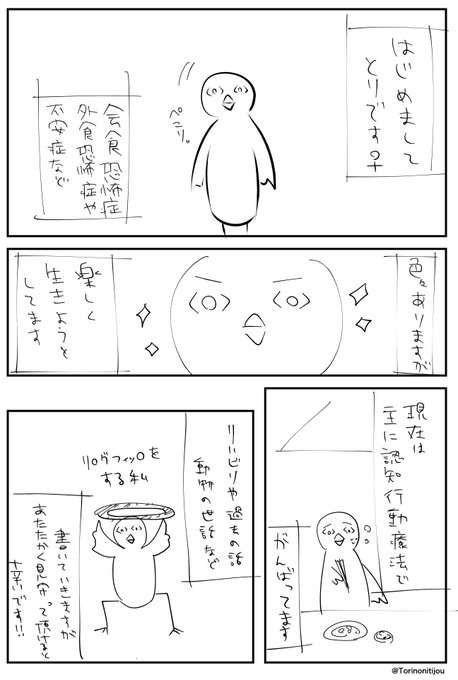 はじめまして
とりです
ぺこり。
会食恐怖症
外食恐怖症や
不安症など
色々ありますが
楽しく
生きようと
してます
現在は
主に認知行動療法で
がんばってます
リハビリや過去の話
動物の世話など
リングフィットを
する私
書いていきますが
あたたかく見守って頂けると
幸いです!!
@Torinonitijou